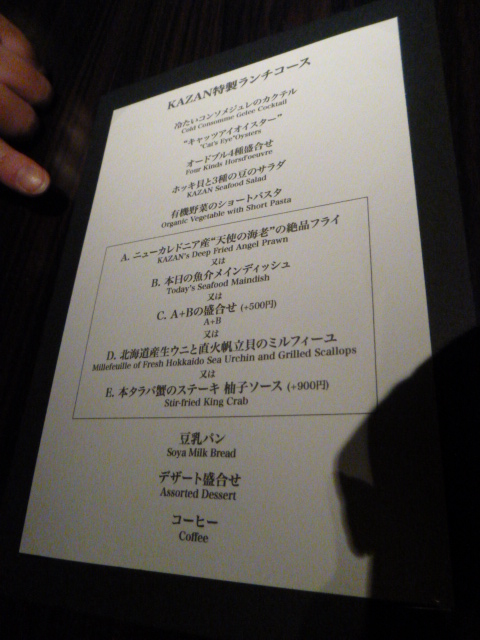 KAZAN特製ランチコース
冷たいコンソメジュレのカクテル
Cold Consomme Gelee Cocktail
"キャッツアイオイスター"
"Cat's Eye"Oysters
オードブル4種盛合せ
Four Kinds Horsd'oeuvre
ホッキ貝と3種の豆のサラダ
KAZAN Seafood Salad
有機野菜のショートパスタ
Organic Vegetable with Short Pasta
A. ニューカレドニア産"天使の海老"の絶品フライ
KAZAN's Deep Fried Angel Prawn
又は
B. 本日の魚介メインディッシュ
Today's Seafood Maindish
又は
C. A+Bの盛合せ (+500円)
A+B
又は
D. 北海道産生ウニと直火帆立貝のミルフィーユ
Millefeuille of Fresh Hokkaido Sea Urchin and Grilled Scallops
又は
E. 本タラバ蟹のステーキ 柚子ソース (+900円)
Stir-fried King Crab
豆乳パン
Soya Milk Bread
デザート盛合せ
Assorted Dessert
コーヒー
Coffee